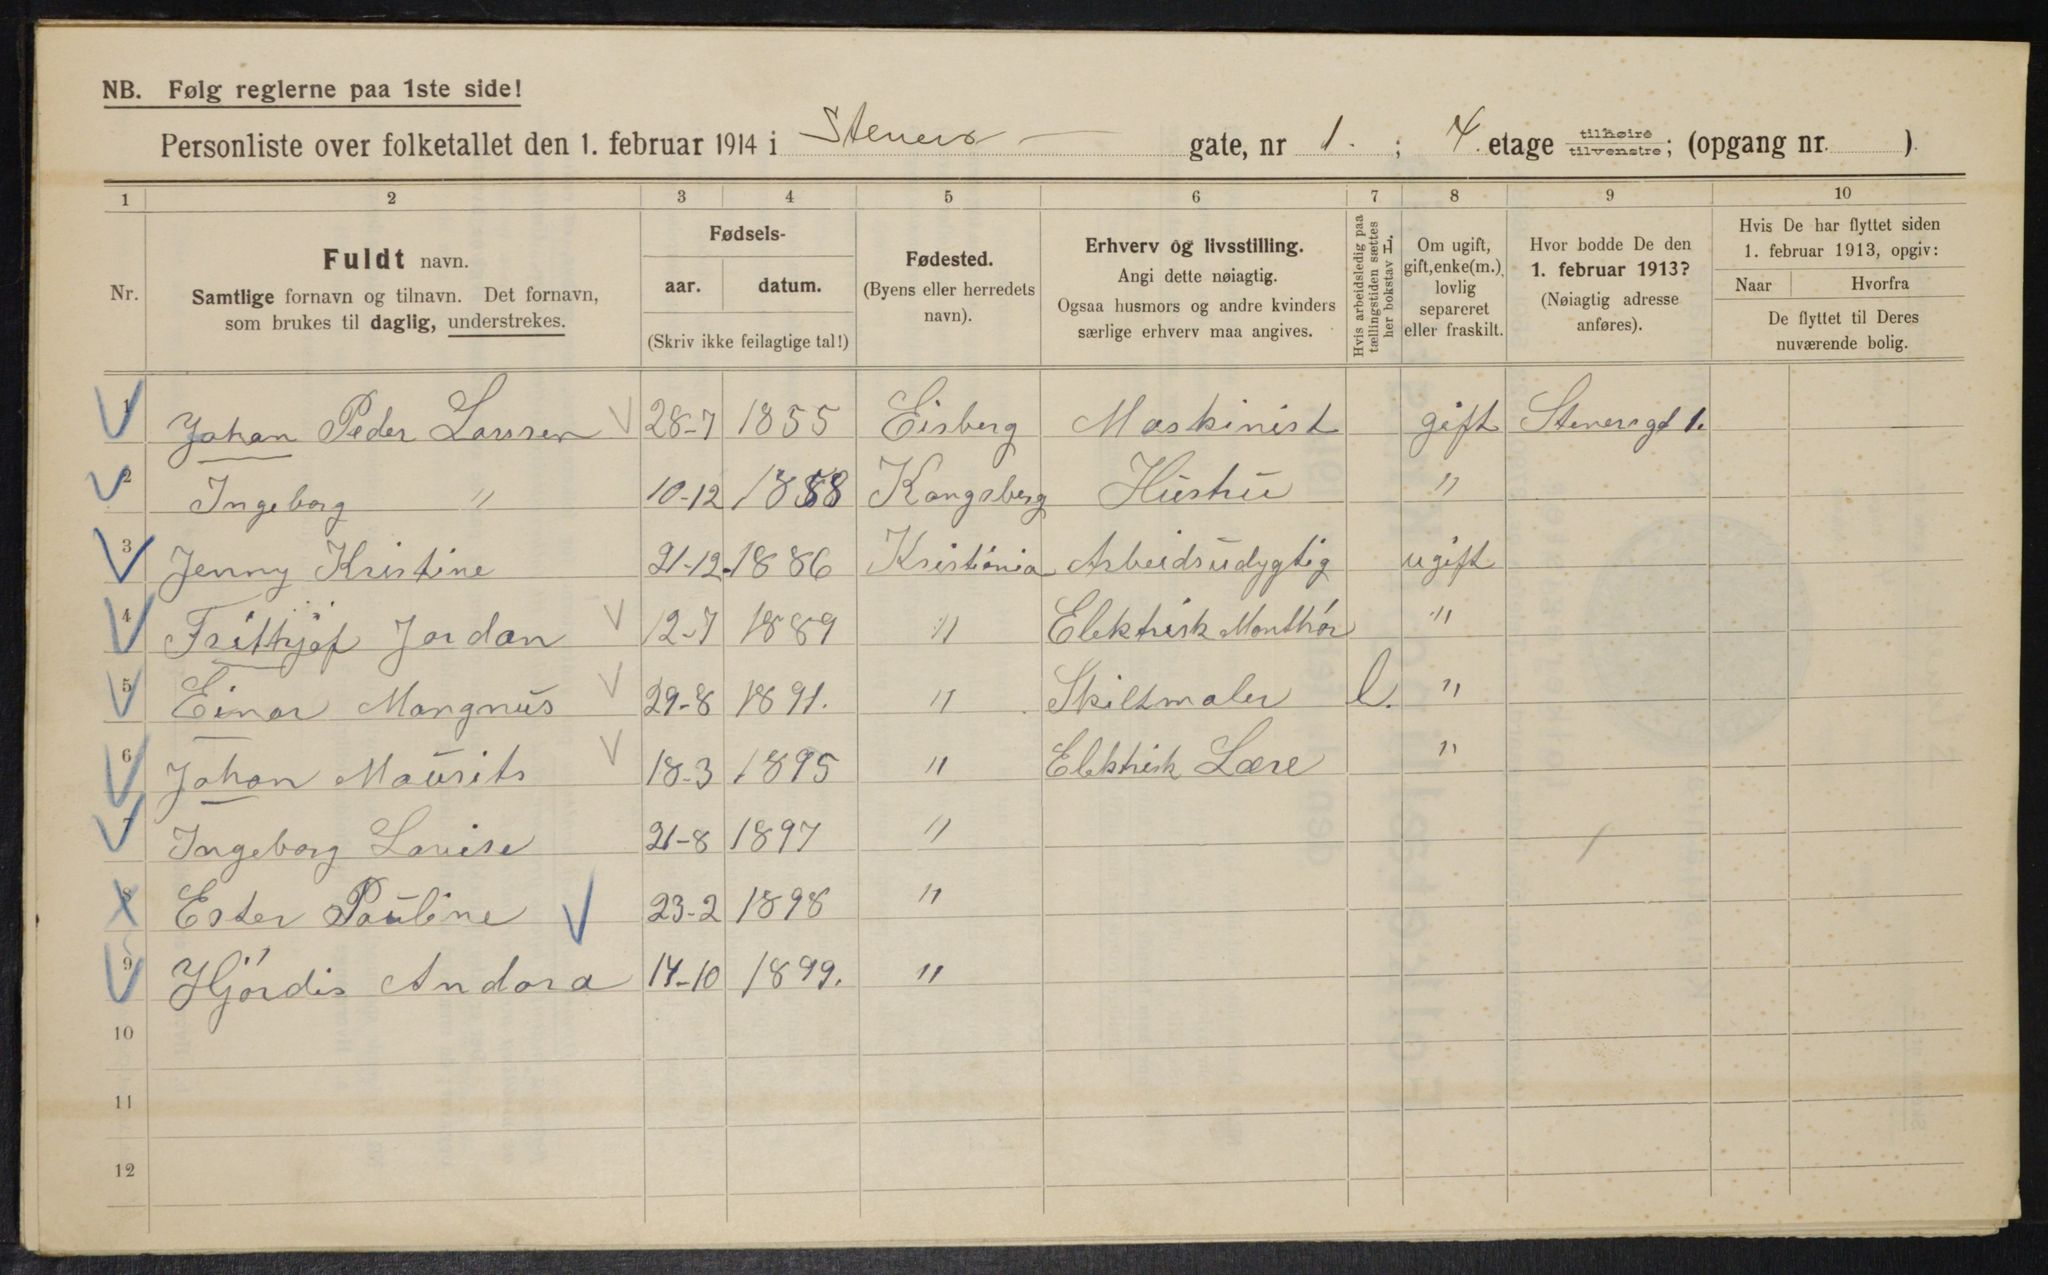 NB. Følg reglerne paa 1ste side!
Personliste over folketallet den 1. februar 1914 i Steners gate, nr 1. ; 4. etage tilhøire tilvenstre; (opgang nr. ).
1 2 3 4 5 6 7 8 9 10
Nr.
Fuldt navn.
Samtlige fornavn og tilnavn. Det fornavn,
som brukes til daglig, understrekes.
Fødsels-
aar. datum.
(Skriv ikke feilagtige tal!)
Fødested.
(Byens eller herredets
navn).
Erhverv og livsstilling.
Angi dette nøiagtig.
Ogsaa husmors og andre kvinders
særlige erhverv maa angives.
Hvis arbeidsledig paa
tællingstiden sættes
her bokstav L.
Om ugift,
gift, enke(m.),
lovlig
separeret
eller fraskilt.
Hvor bodde De den
1. februar 1913?
(Nøiagtig adresse
anføres).
Hvis De har flyttet siden
1. februar 1913, opgiv:
Naar Hvorfra
De flyttet til Deres
nuværende bolig.
1 Johan Peder Larssen 28-7 1855 Eisberg Maskinist gift Stenersgt 1.
2 Ingeborg " 10-12 1858 Kongsberg Hustru "
3 Jenny Kristine 21-12 1886 Kristiania Arbeidsudygtig ugift
4 Frithjof Jordan 12-7 1889 " Elektrisk Monthör "
5 Einar Mangnus 29-8 1891. " Skiltmaler l. "
6 Johan Maurits 18-3 1895 " Elektrisk Lære "
7 Ingeborg Lovise 21-8 1897 "
8 Ester Pauline 23-2 1898 "
9 Hjördis Andora 14-10 1899. "
10
11
12